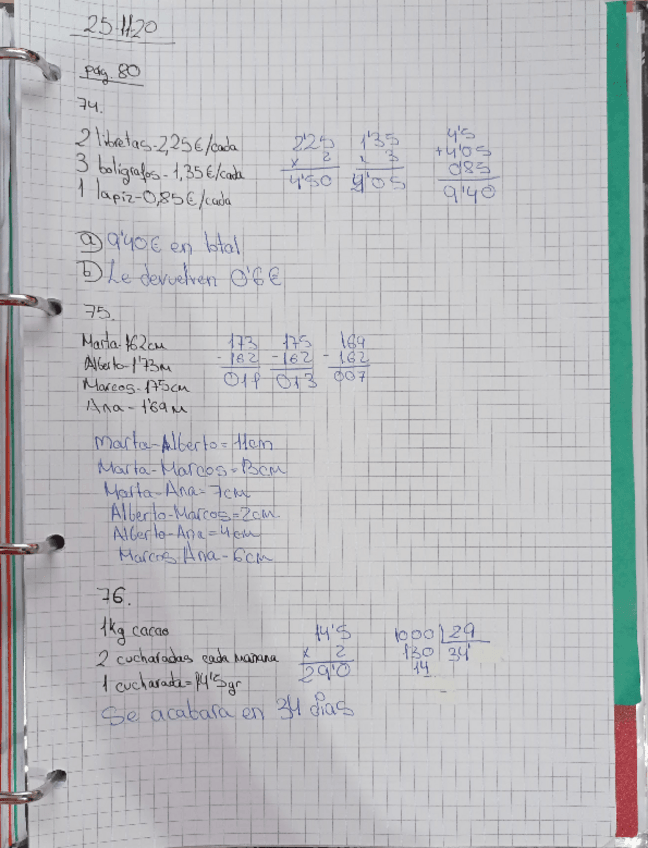 25-11-20
pág. 80
74.
2 libretas-2,25€/cada
3 bolígrafos-1,35€/cada
1 lapiz-0,85€/cada
2'25 1'35 4'5
x 2 x 3 +4'05
4'50 4'05 0'85
9'40
a) 9'40€ en total
b) Le devuelven 0'6€
75.
Marta-162cm
Alberto-1'73m
Marcos-175cm
Ana-1'69m
173 175 169
-162 -162 -162
011 013 007
Marta-Alberto=11cm
Marta-Marcos=13cm
Marta-Ana=7cm
Alberto-Marcos=2cm
Alberto-Ana=4cm
Marcos-Ana-6cm
76.
1kg cacao
2 cucharadas cada mañana
1 cucharada=14'5gr
14'5 1000 29
x 2 130 34
29'0 14
Se acabara en 34 días